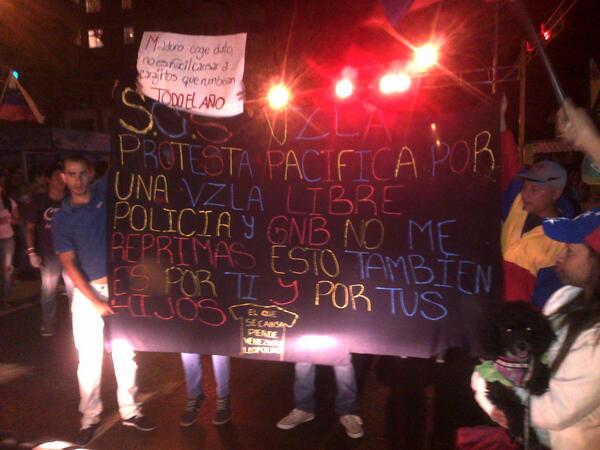 Maduro coge dato
no es fácil cansar a
carajitos que rumbean
TODO EL AÑO
S.O.S VZLA
PROTESTA PACIFICA POR
UNA VZLA LIBRE
POLICIA y GNB NO ME
REPRIMAS ESTO TAMBIEN
ES POR TI y POR TUS
HIJOS
EL QUE
SE CANSA
PIERDE
VENEZUELA
LEOPOLDO